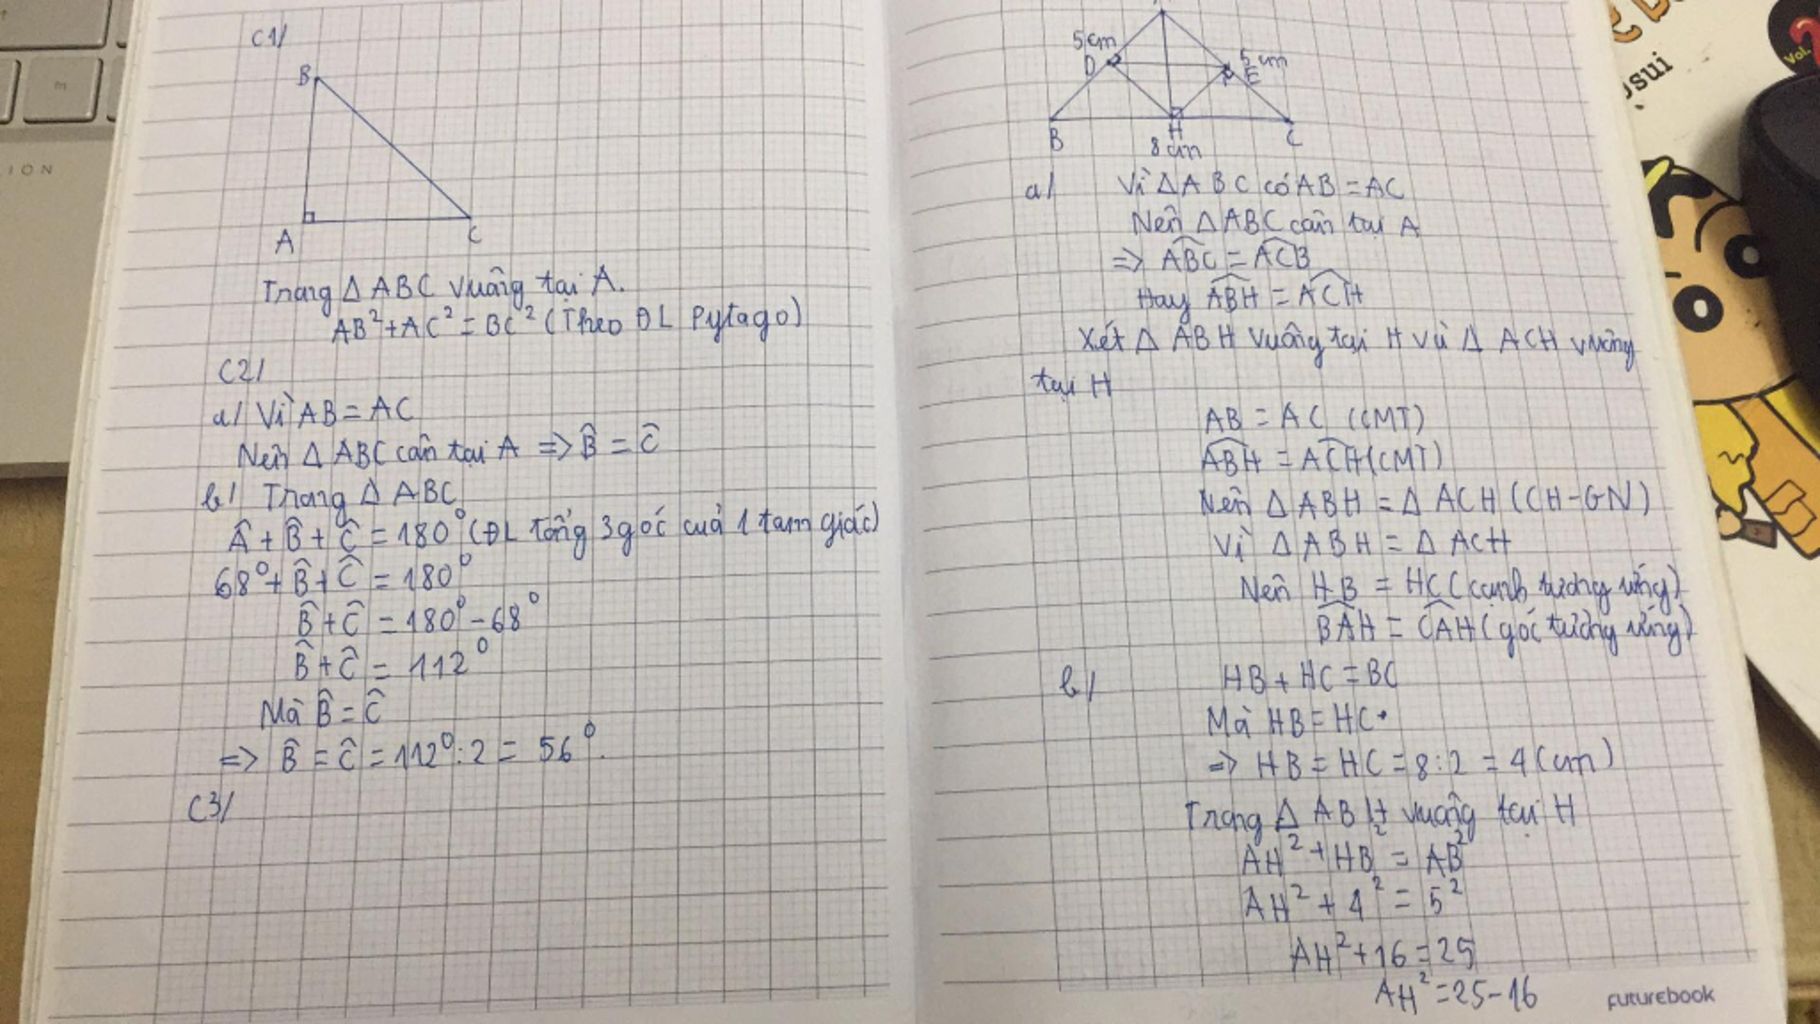 C1/
B
A
C
Trong Δ ABC vuông tại A.
AB² + AC² = BC² (Theo ĐL Pytago)
C2/
a/ Vì AB = AC
Nên Δ ABC cân tại A => B̂ = Ĉ
b/ Trong Δ ABC
Â + B̂ + Ĉ = 180° (ĐL tổng 3 góc của 1 tam giác)
68° + B̂ + Ĉ = 180°
B̂ + Ĉ = 180° - 68°
B̂ + Ĉ = 112°
Mà B̂ = Ĉ
=> B̂ = Ĉ = 112° : 2 = 56°.
C3/
5cm
D
5 cm
E
B
H
C
8 cm
a/ Vì Δ ABC có AB = AC
Nên Δ ABC cân tại A
=> \widehat{ABC} = \widehat{ACB}
Hay \widehat{ABH} = \widehat{ACH}
Xét Δ ABH vuông tại H và Δ ACH vuông
tại H
AB = AC (CMT)
\widehat{ABH} = \widehat{ACH} (CMT)
Nên Δ ABH = Δ ACH (CH-GN)
Vì Δ ABH = Δ ACH
Nên HB = HC (cạnh tương ứng)
\widehat{BAH} = \widehat{CAH} (góc tương ứng)
b/ HB + HC = BC
Mà HB = HC.
=> HB = HC = 8 : 2 = 4 (cm)
Trong Δ ABH vuông tại H
AH² + HB² = AB²
AH² + 4² = 5²
AH² + 16 = 25
AH² = 25 - 16
futurebook
ION
osui
Vol.